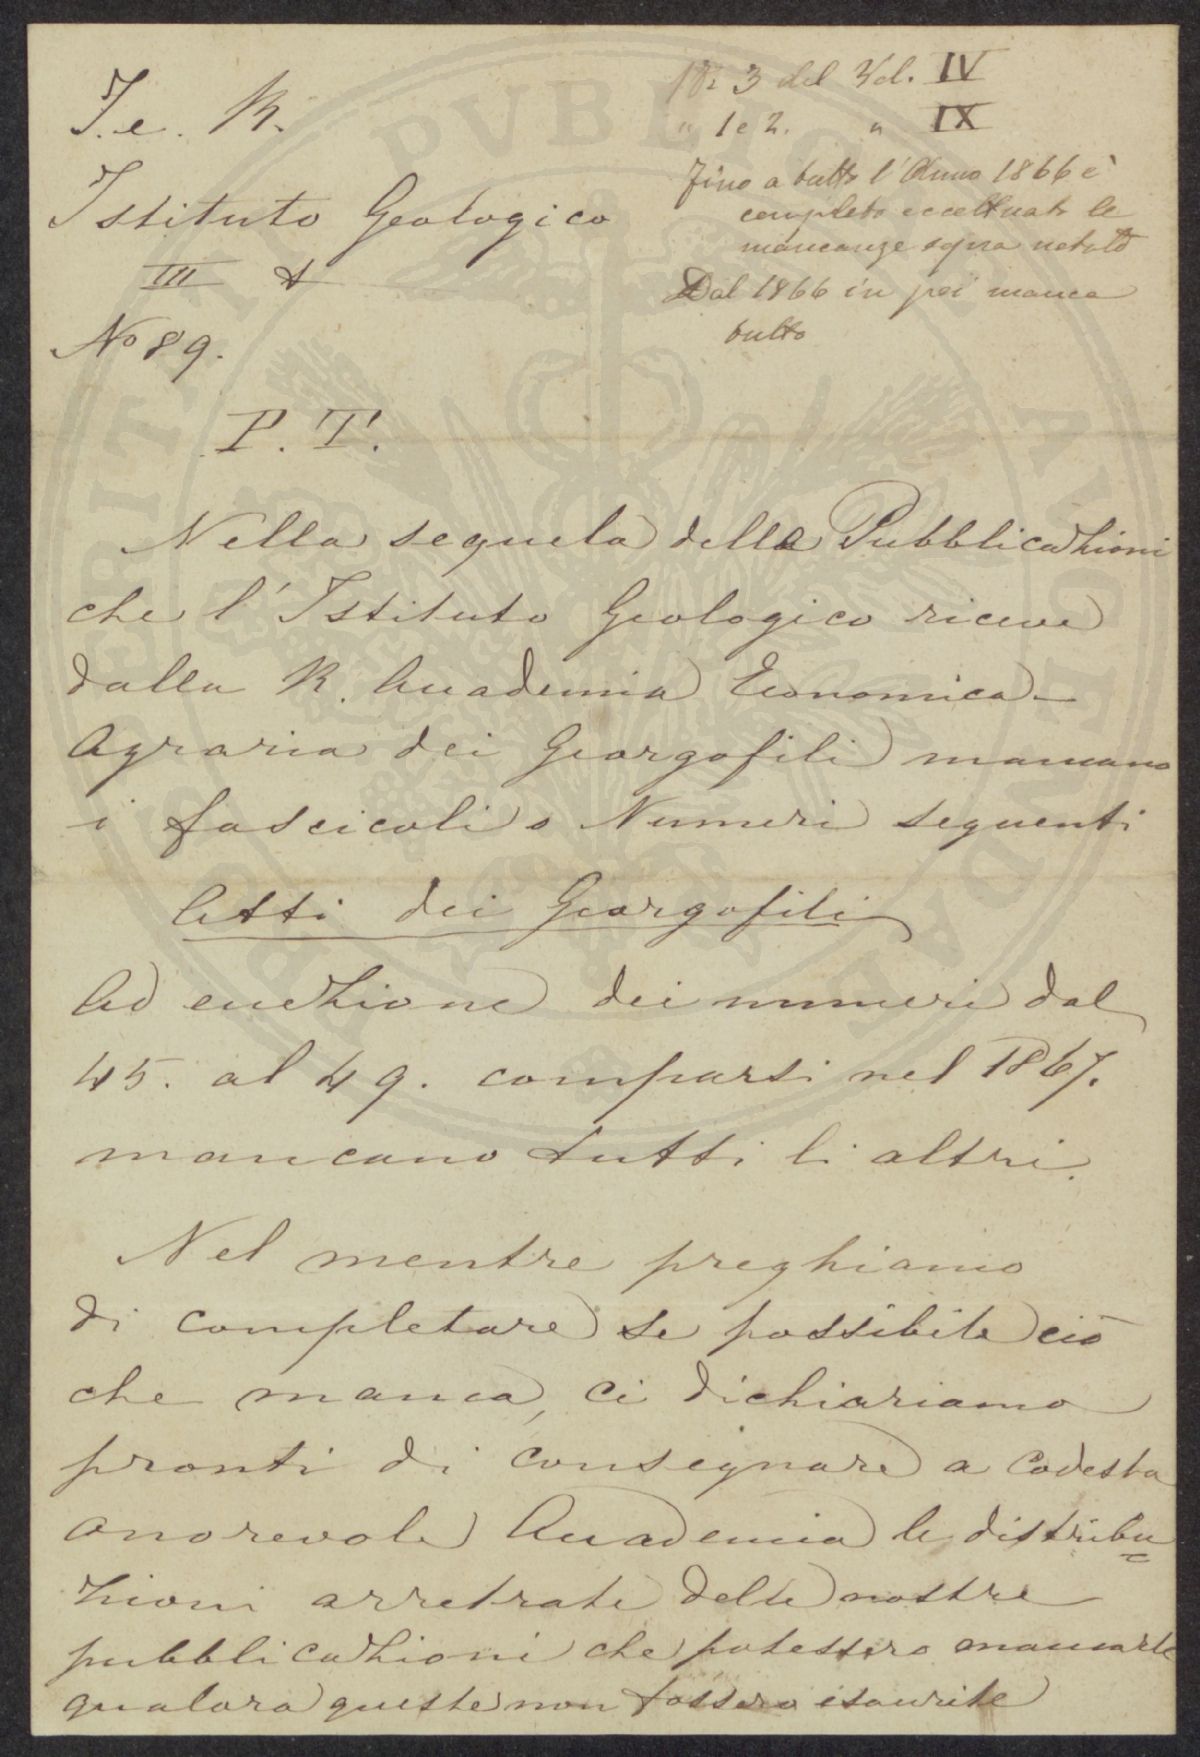 I. e. R.
Istituto Geologico
III
No 89.
3 del Vol. IV
" 1 e 2. " IX
Fino a tutto l'Anno 1866 è
completo eccettuato le
mancanze sopra notate
Dal 1866 in poi manca
tutto
P. T.
Nella sequela delle Pubblicazioni
che l'Istituto Geologico riceve
dalla R. Accademia Economica-
Agraria dei Georgofili mancano
i fascicoli o Numeri seguenti
Atti dei Georgofili
Ad eccezione dei numeri dal
45. al 49. comparsi nel 1867.
mancano tutti li altri.
Nel mentre preghiamo
di completare se possibile ciò
che manca, ci dichiariamo
pronti di consegnare a codesta
onorevole Accademia le distribu
zioni arretrate delle nostre
pubblicazioni che potessero mancarle
qualora queste non fossero esaurite